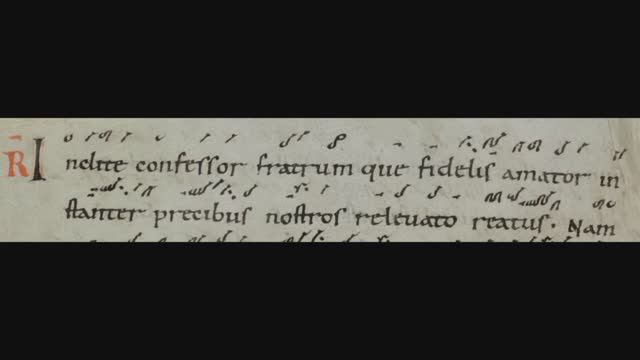 R Inclite confessor fratrum que fidelis amator in
stanter precibus nostros relevato reatus. Nam